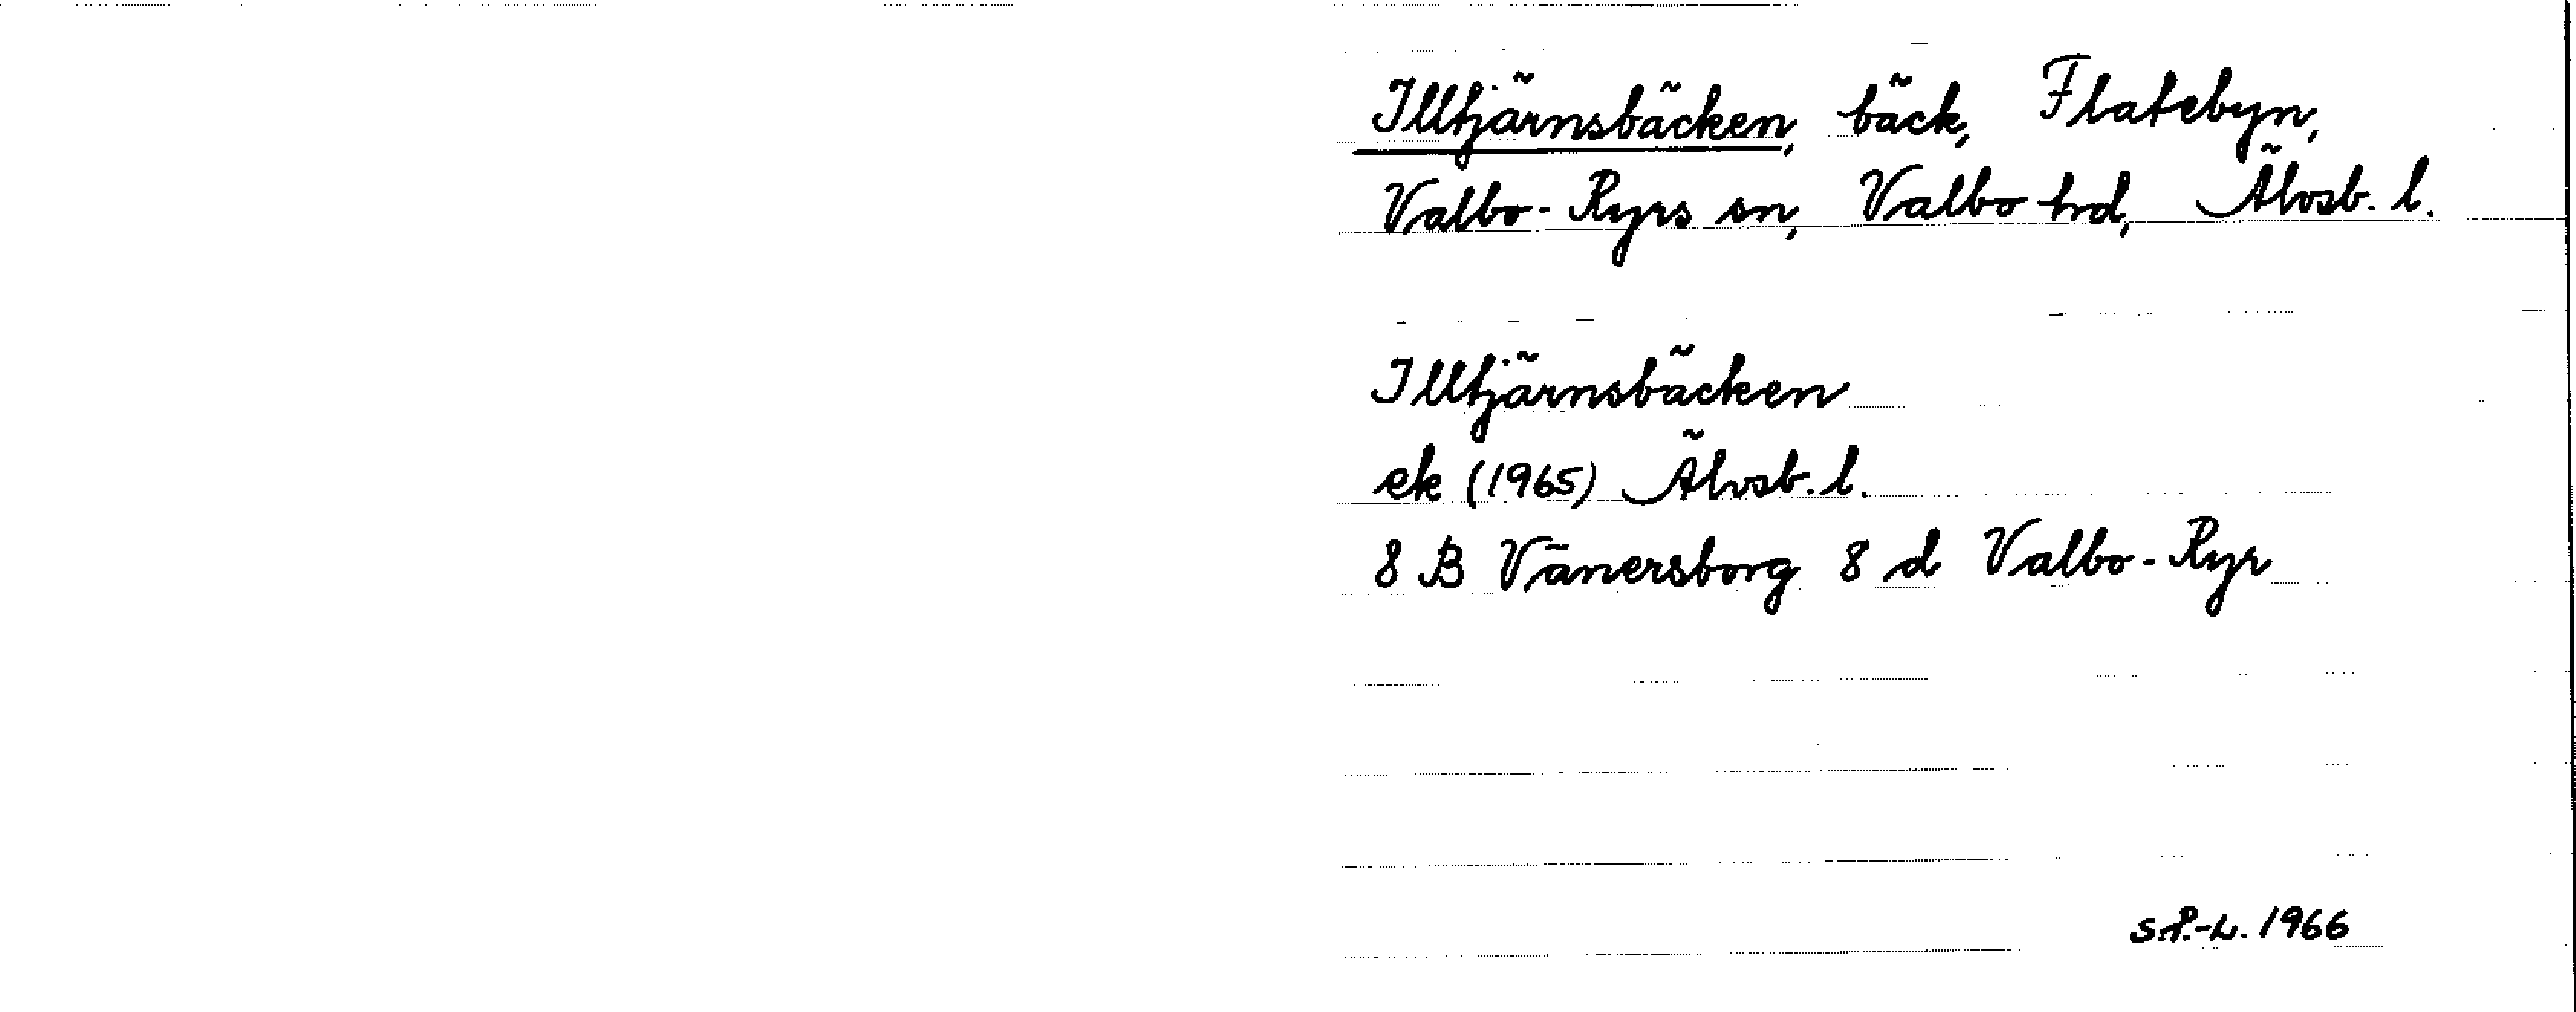 Illtjärnsbäcken, bäck, Flatebyn,
Valbo-Ryrs sn, Valbo hd, Älvsb. l.
Illtjärnsbäcken
ek (1965) Älvsb. l.
8 B Vänersborg 8 d Valbo-Ryr
S.P.-L. 1966